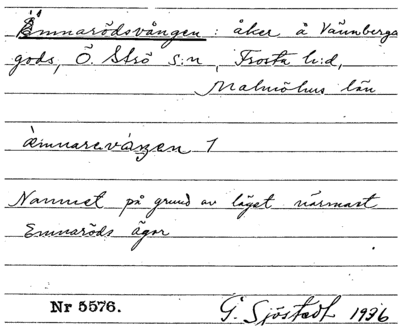 Emnarödsvången : åker å Vännberga
gods, Ö. Strö s:n, Frosta h:d,
Malmöhus län
æmnarevånen 1
Namnet på grund av läget närmast
Emnaröds ägor
Nr 5576.
G. Sjöstedt 1936